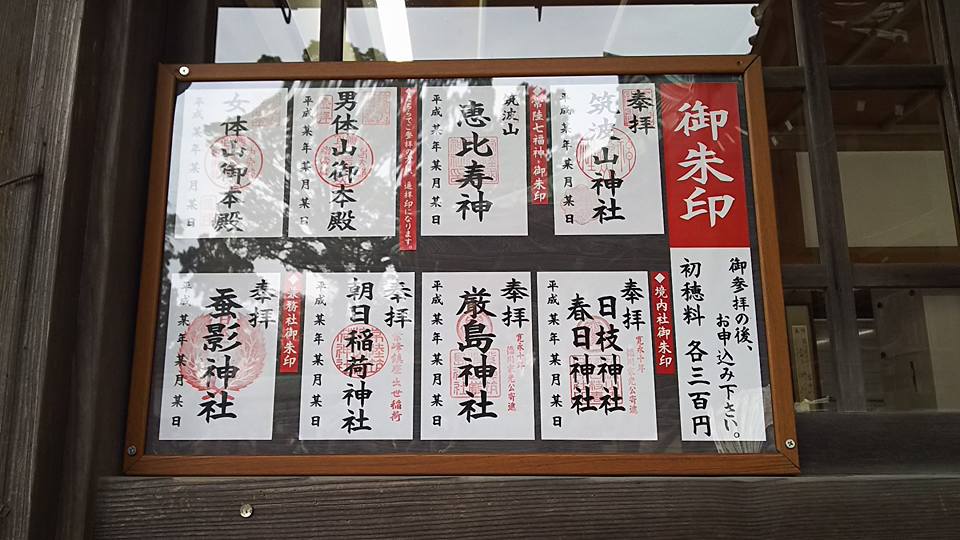 御朱印
御参拝の後、
お申込み下さい。
初穂料 各三百円
奉拝
筑波山神社
平成某年某月某日
◆常陸七福神・御朱印
筑波山
恵比寿神
平成某年某月某日
遥拝印になります。
男体山御本殿
平成某年某月某日
女体山御本殿
平成某年某月某日
◆境内社御朱印
奉拝
寛永十年
徳川家光公寄進
日枝神社
春日神社
平成某年某月某日
奉拝
寛永十年
徳川家光公寄進
厳島神社
平成某年某月某日
奉拝
出世稲荷
朝日稲荷神社
平成某年某月某日
◆兼務社御朱印
奉拝
蚕影神社
平成某年某月某日